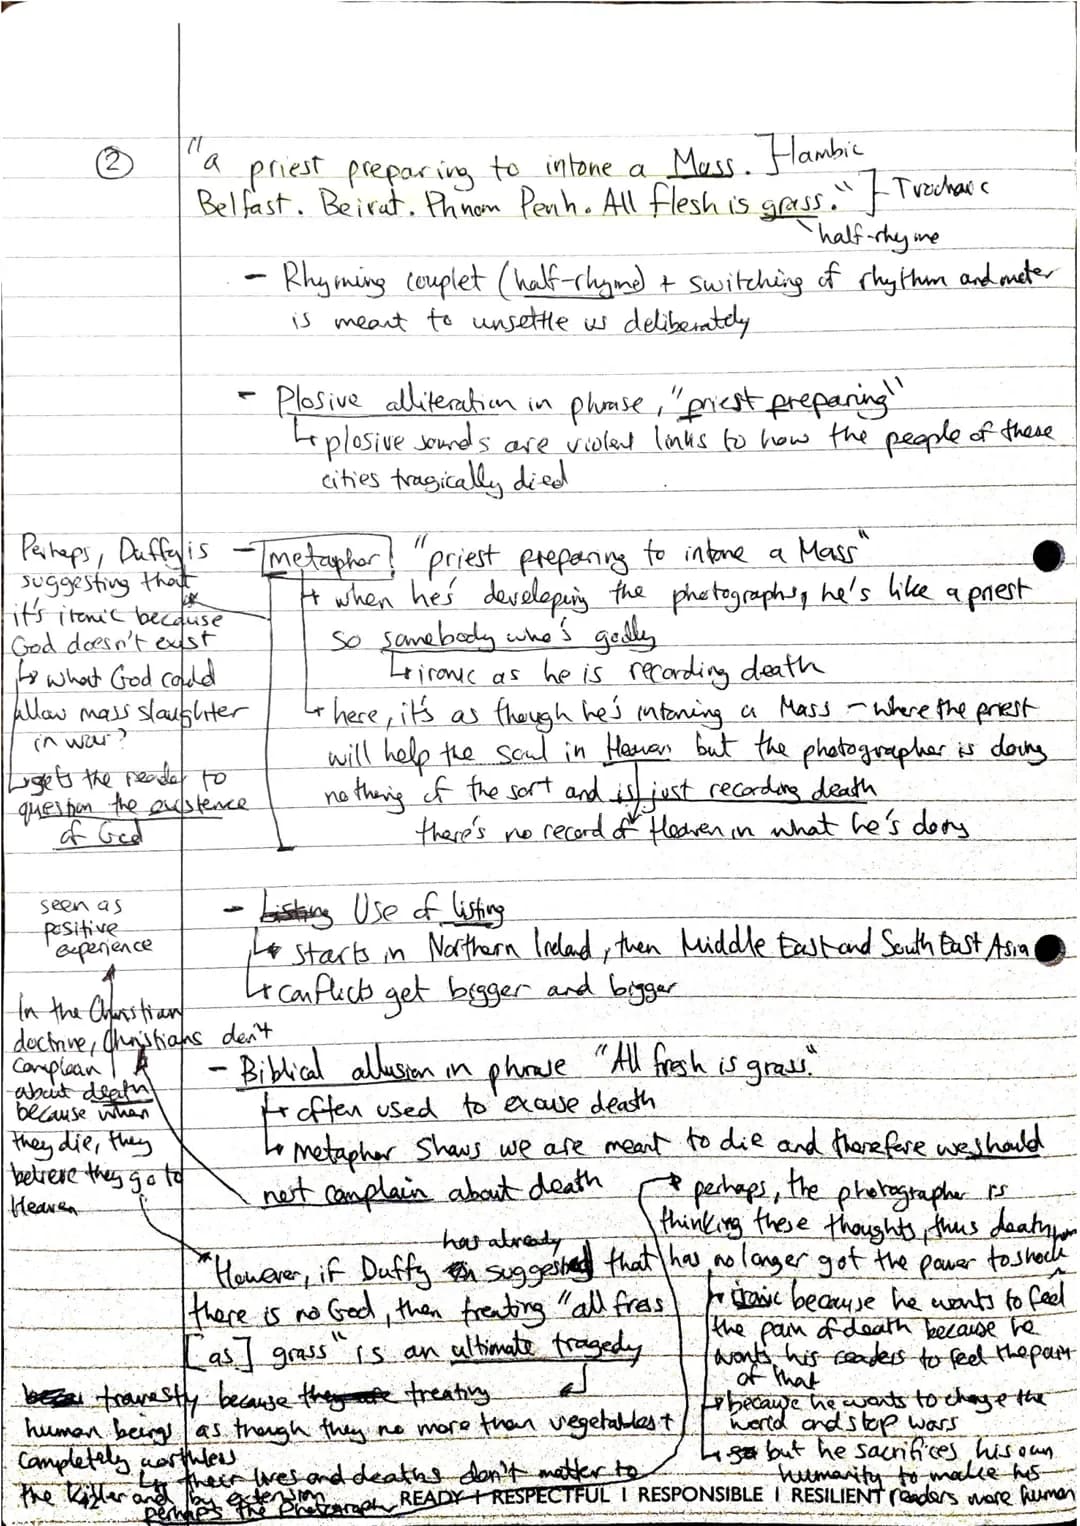 ②
"a priest preparing to intone a Mass. ] Iambic
Belfast. Beirut. Phnom Penh. All flesh is grass." ] Trochaic
half-rhyme
- Rhyming couplet (half-rhyme) + switching of rhythm and meter
is meant to unsettle us deliberately
- Plosive alliteration in phrase, "priest preparing"
↳ plosive sounds are violent links to how the people of these
cities tragically died
Perhaps, Duffy is
suggesting that
it's ironic because
God doesn't exist
↳ what God could
allow mass slaughter
in war?
↳ gets the reader to
question the existence
of God
- metaphor! "priest preparing to intone a Mass"
↳ when he's developing the photographs, he's like a priest
so somebody who's godly
↳ ironic as he is recording death
↳ here, it's as though he's intoning a Mass - where the priest
will help the soul in Heaven but the photographer is doing
nothing of the sort and is just recording death
there's no record of Heaven in what he's doing
- Listing Use of listing
↳ starts in Northern Ireland, then Middle East and South East Asia
↳ conflicts get bigger and bigger
seen as
positive
experience
In the Christian
doctrine, Christians don't
complain
about death
because when
they die, they
believe they go to
Heaven
- Biblical allusion in phrase "All fresh is grass."
↳ often used to excuse death
↳ metaphor shows we are meant to die and therefore we should
not complain about death
perhaps, the photographer is
thinking these thoughts, thus death
has no longer got the power to shock
↳ ironic because he wants to feel
the pain of death because he
wants his readers to feel the pain
of that
↳ because he wants to change the
world and stop wars
↳ but he sacrifices his own
humanity to make his
readers more human
However, if Duffy has already suggested that
there is no God, then treating "all fress
[as] grass" is an ultimate tragedy
travesty because they are treating
human beings as though they no more than vegetables +
completely worthless
↳ their lives and deaths don't matter to
the killer and by extension
perhaps the photograph
READY I RESPECTFUL I RESPONSIBLE I RESILIENT